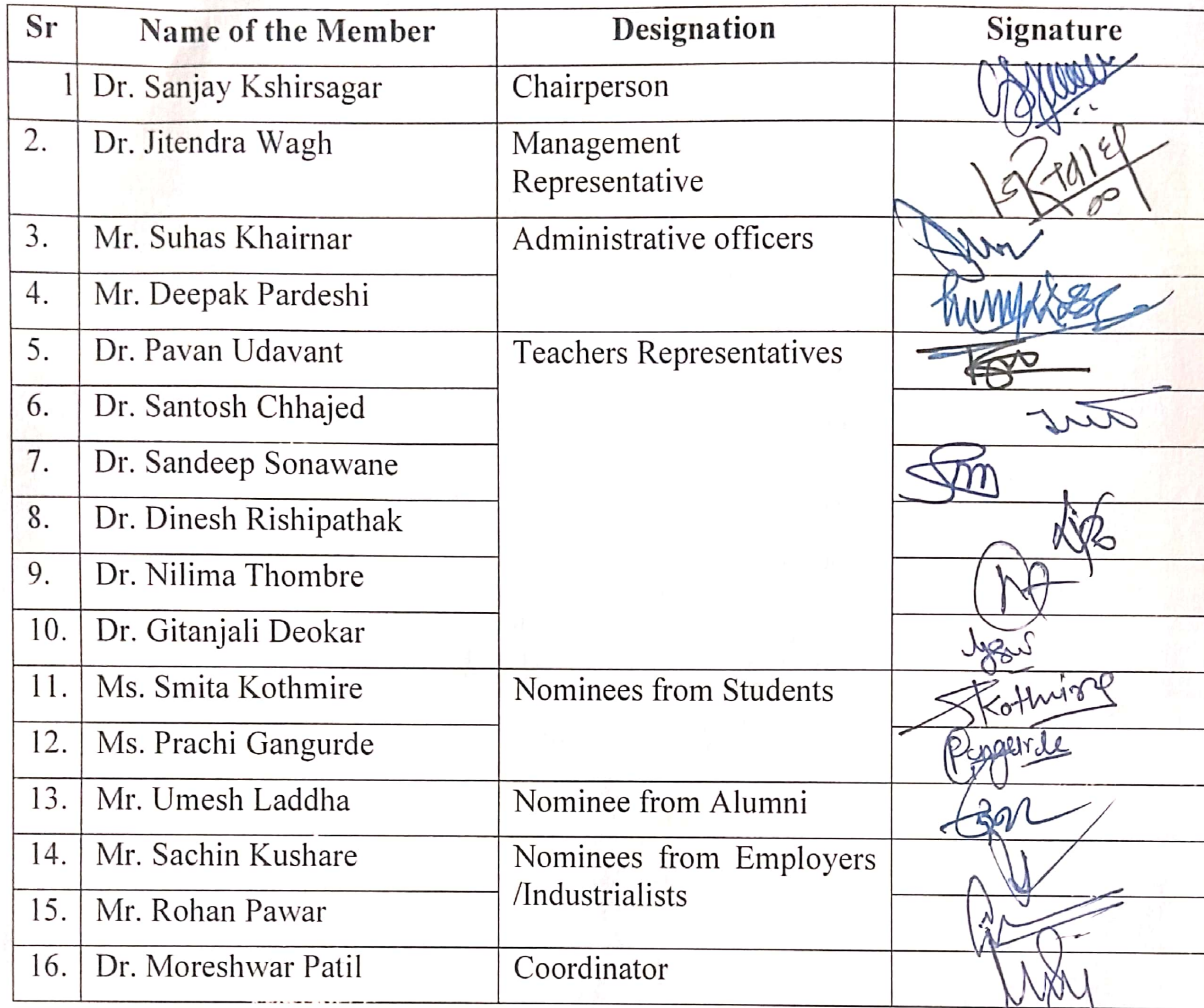 Sr Name of the Member Designation Signature
1 Dr. Sanjay Kshirsagar Chairperson
2. Dr. Jitendra Wagh Management
Representative
3. Mr. Suhas Khairnar Administrative officers
4. Mr. Deepak Pardeshi
5. Dr. Pavan Udavant Teachers Representatives
6. Dr. Santosh Chhajed
7. Dr. Sandeep Sonawane
8. Dr. Dinesh Rishipathak
9. Dr. Nilima Thombre
10. Dr. Gitanjali Deokar
11. Ms. Smita Kothmire Nominees from Students SKothmire
12. Ms. Prachi Gangurde
13. Mr. Umesh Laddha Nominee from Alumni
14. Mr. Sachin Kushare Nominees from Employers
/Industrialists
15. Mr. Rohan Pawar
16. Dr. Moreshwar Patil Coordinator